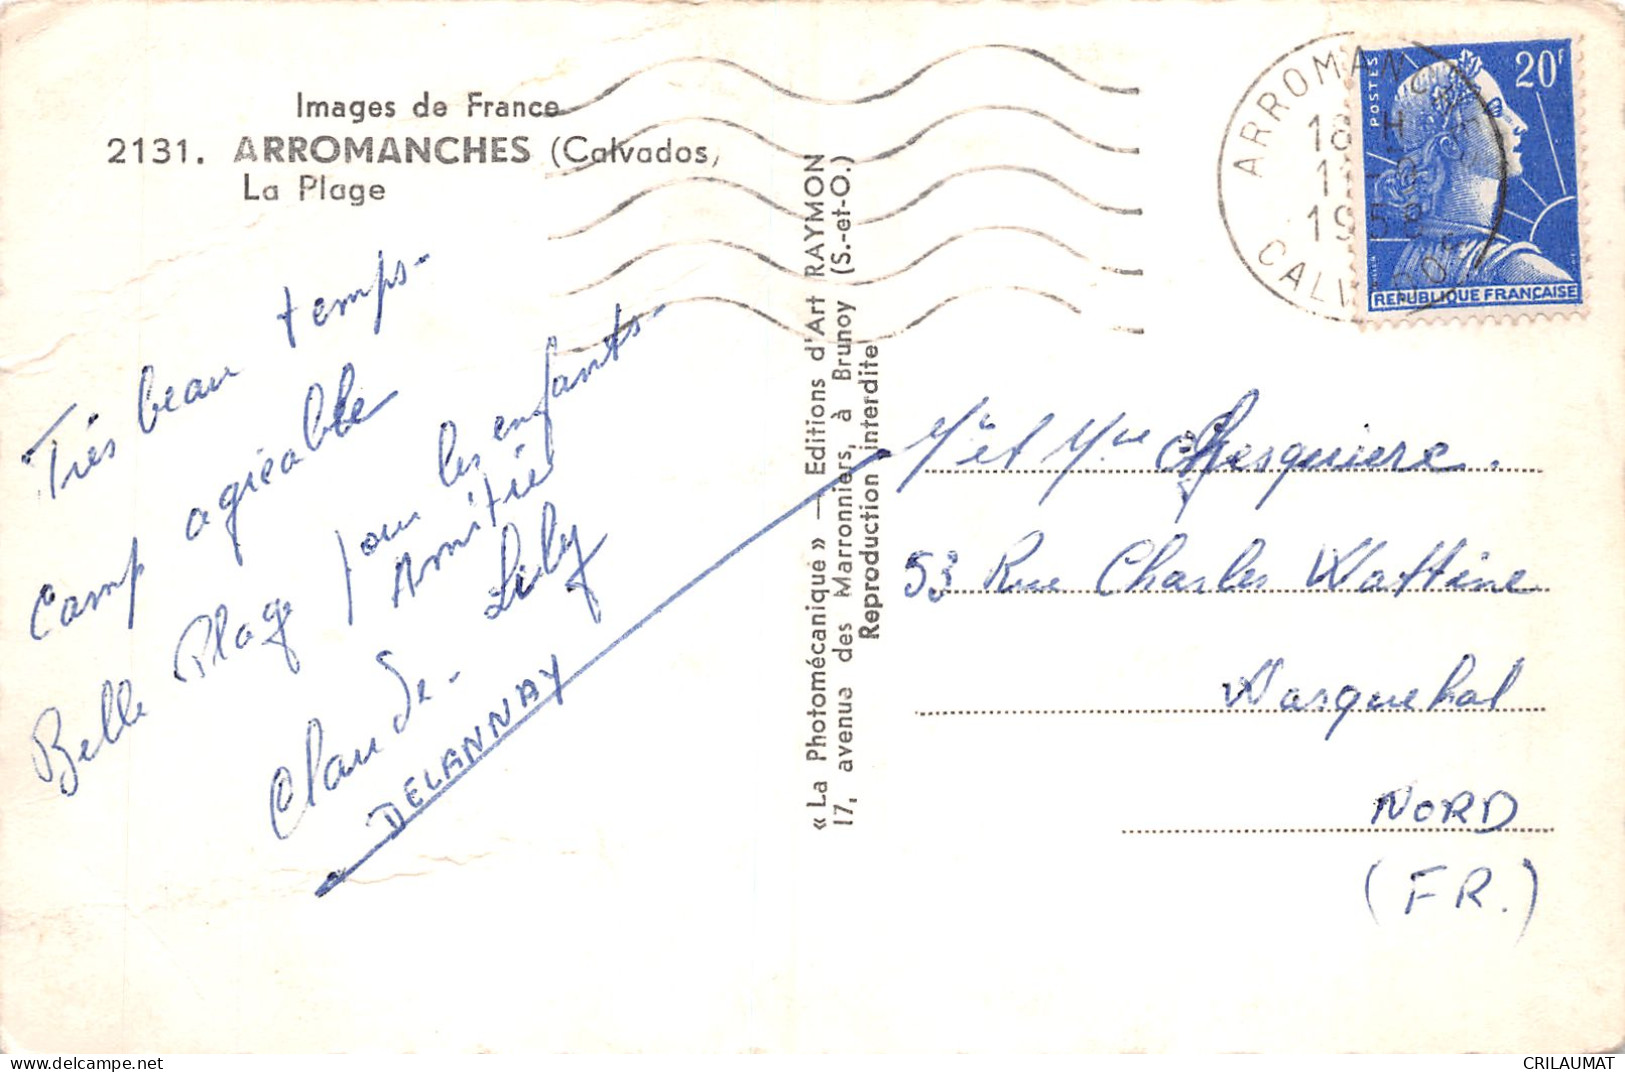 Images de France
2131. ARROMANCHES (Calvados)
La Plage
Très beau temps-
Camp agréable
Belle Plage pour les enfants-
Amitié
Lily
Claude-
DELANNAY
« La Photomécanique » — Editions d'Art RAYMON
17, avenue des Marronniers, à Brunoy (S.-et-O.)
Reproduction interdite
ARROMANCHES
18 H
11
1958
CALVADOS
POSTES
20F
REPUBLIQUE FRANÇAISE
Mr et Mme Ghesquiere.
53 Rue Charles Wattine
Wasquehal
NORD
(FR.)
CRILAUMAT